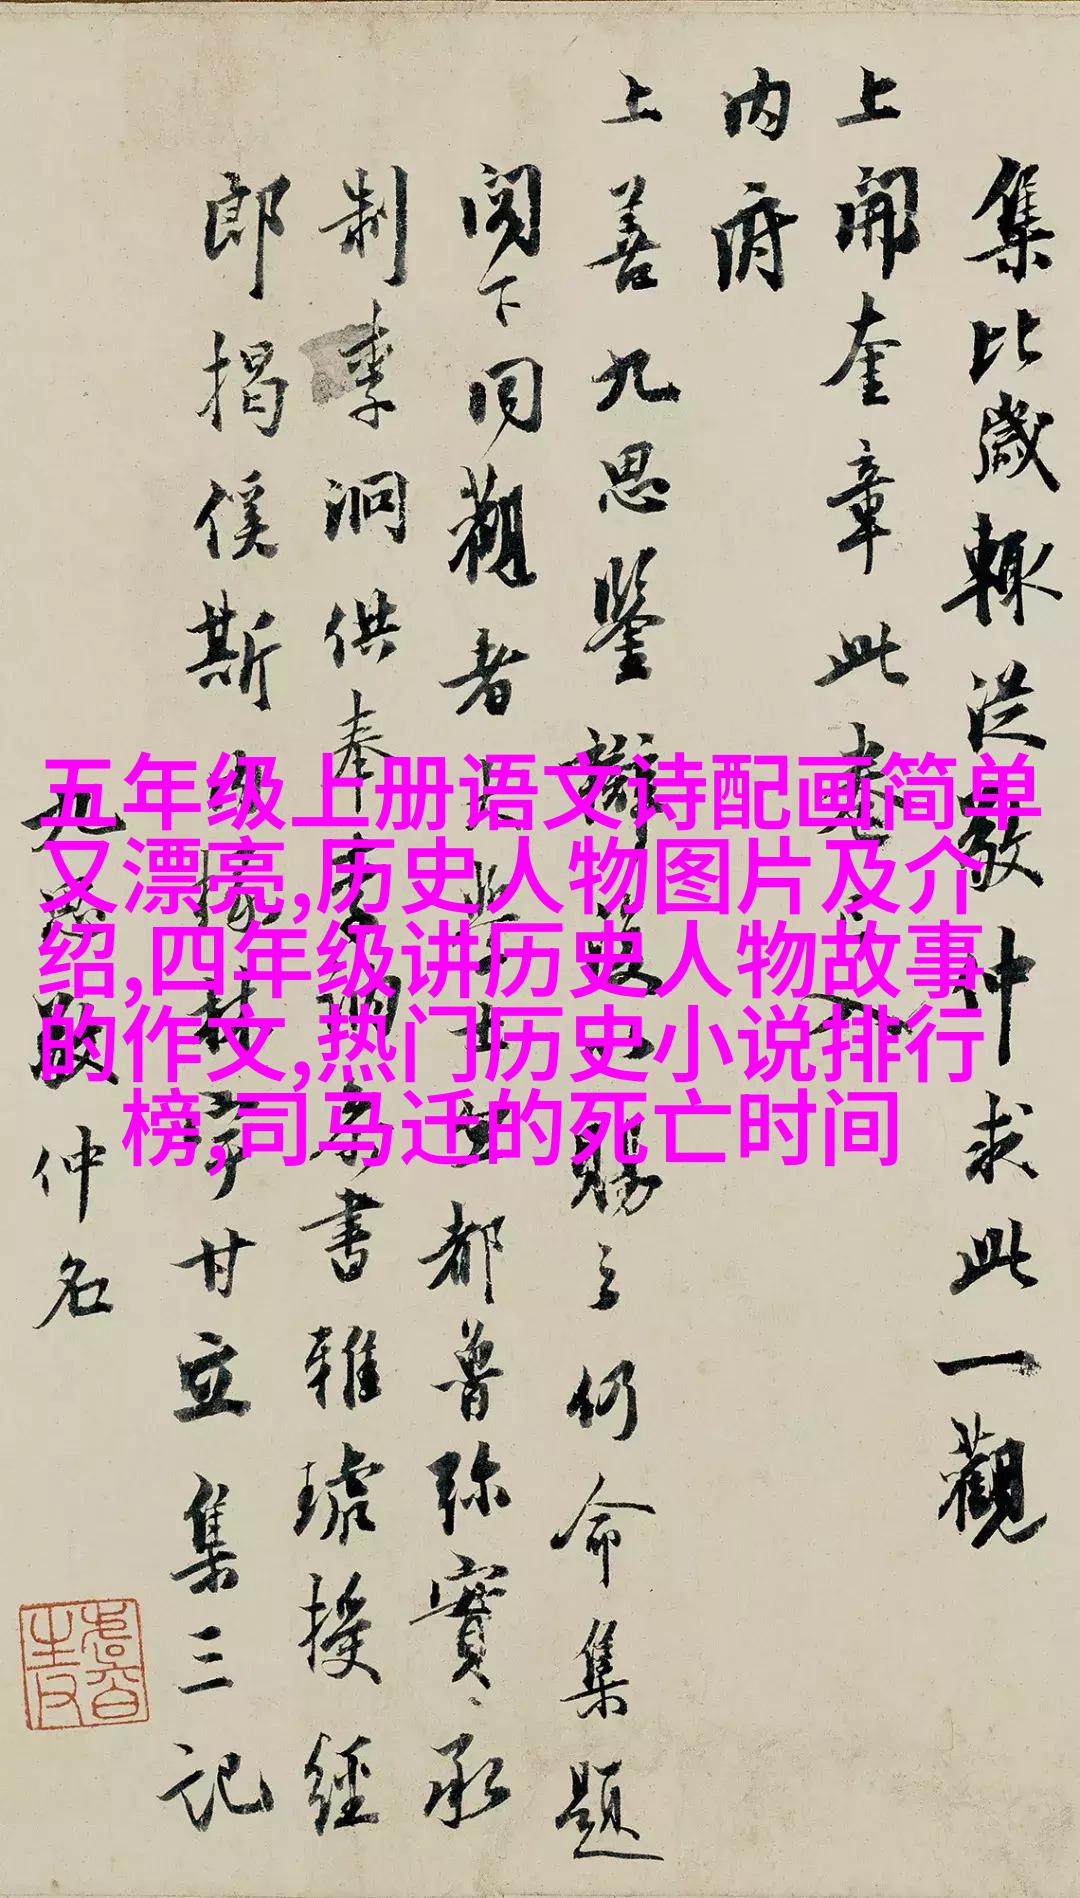 集比歲輒從敬仲求此一觀
上開奎章此卷入
內府
上善九思鑒辯賜之仍命集題
閣下同觀者大學士都魯弥實承
制李泂供奉李書雅琥授經
郎揭傒斯內掾林宇甘立集三記
九思敬仲名
五年级上册语文诗配画简单
又漂亮,历史人物图片及介
绍,四年级讲历史人物故事
的作文,热门历史小说排行
榜,司马迁的死亡时间